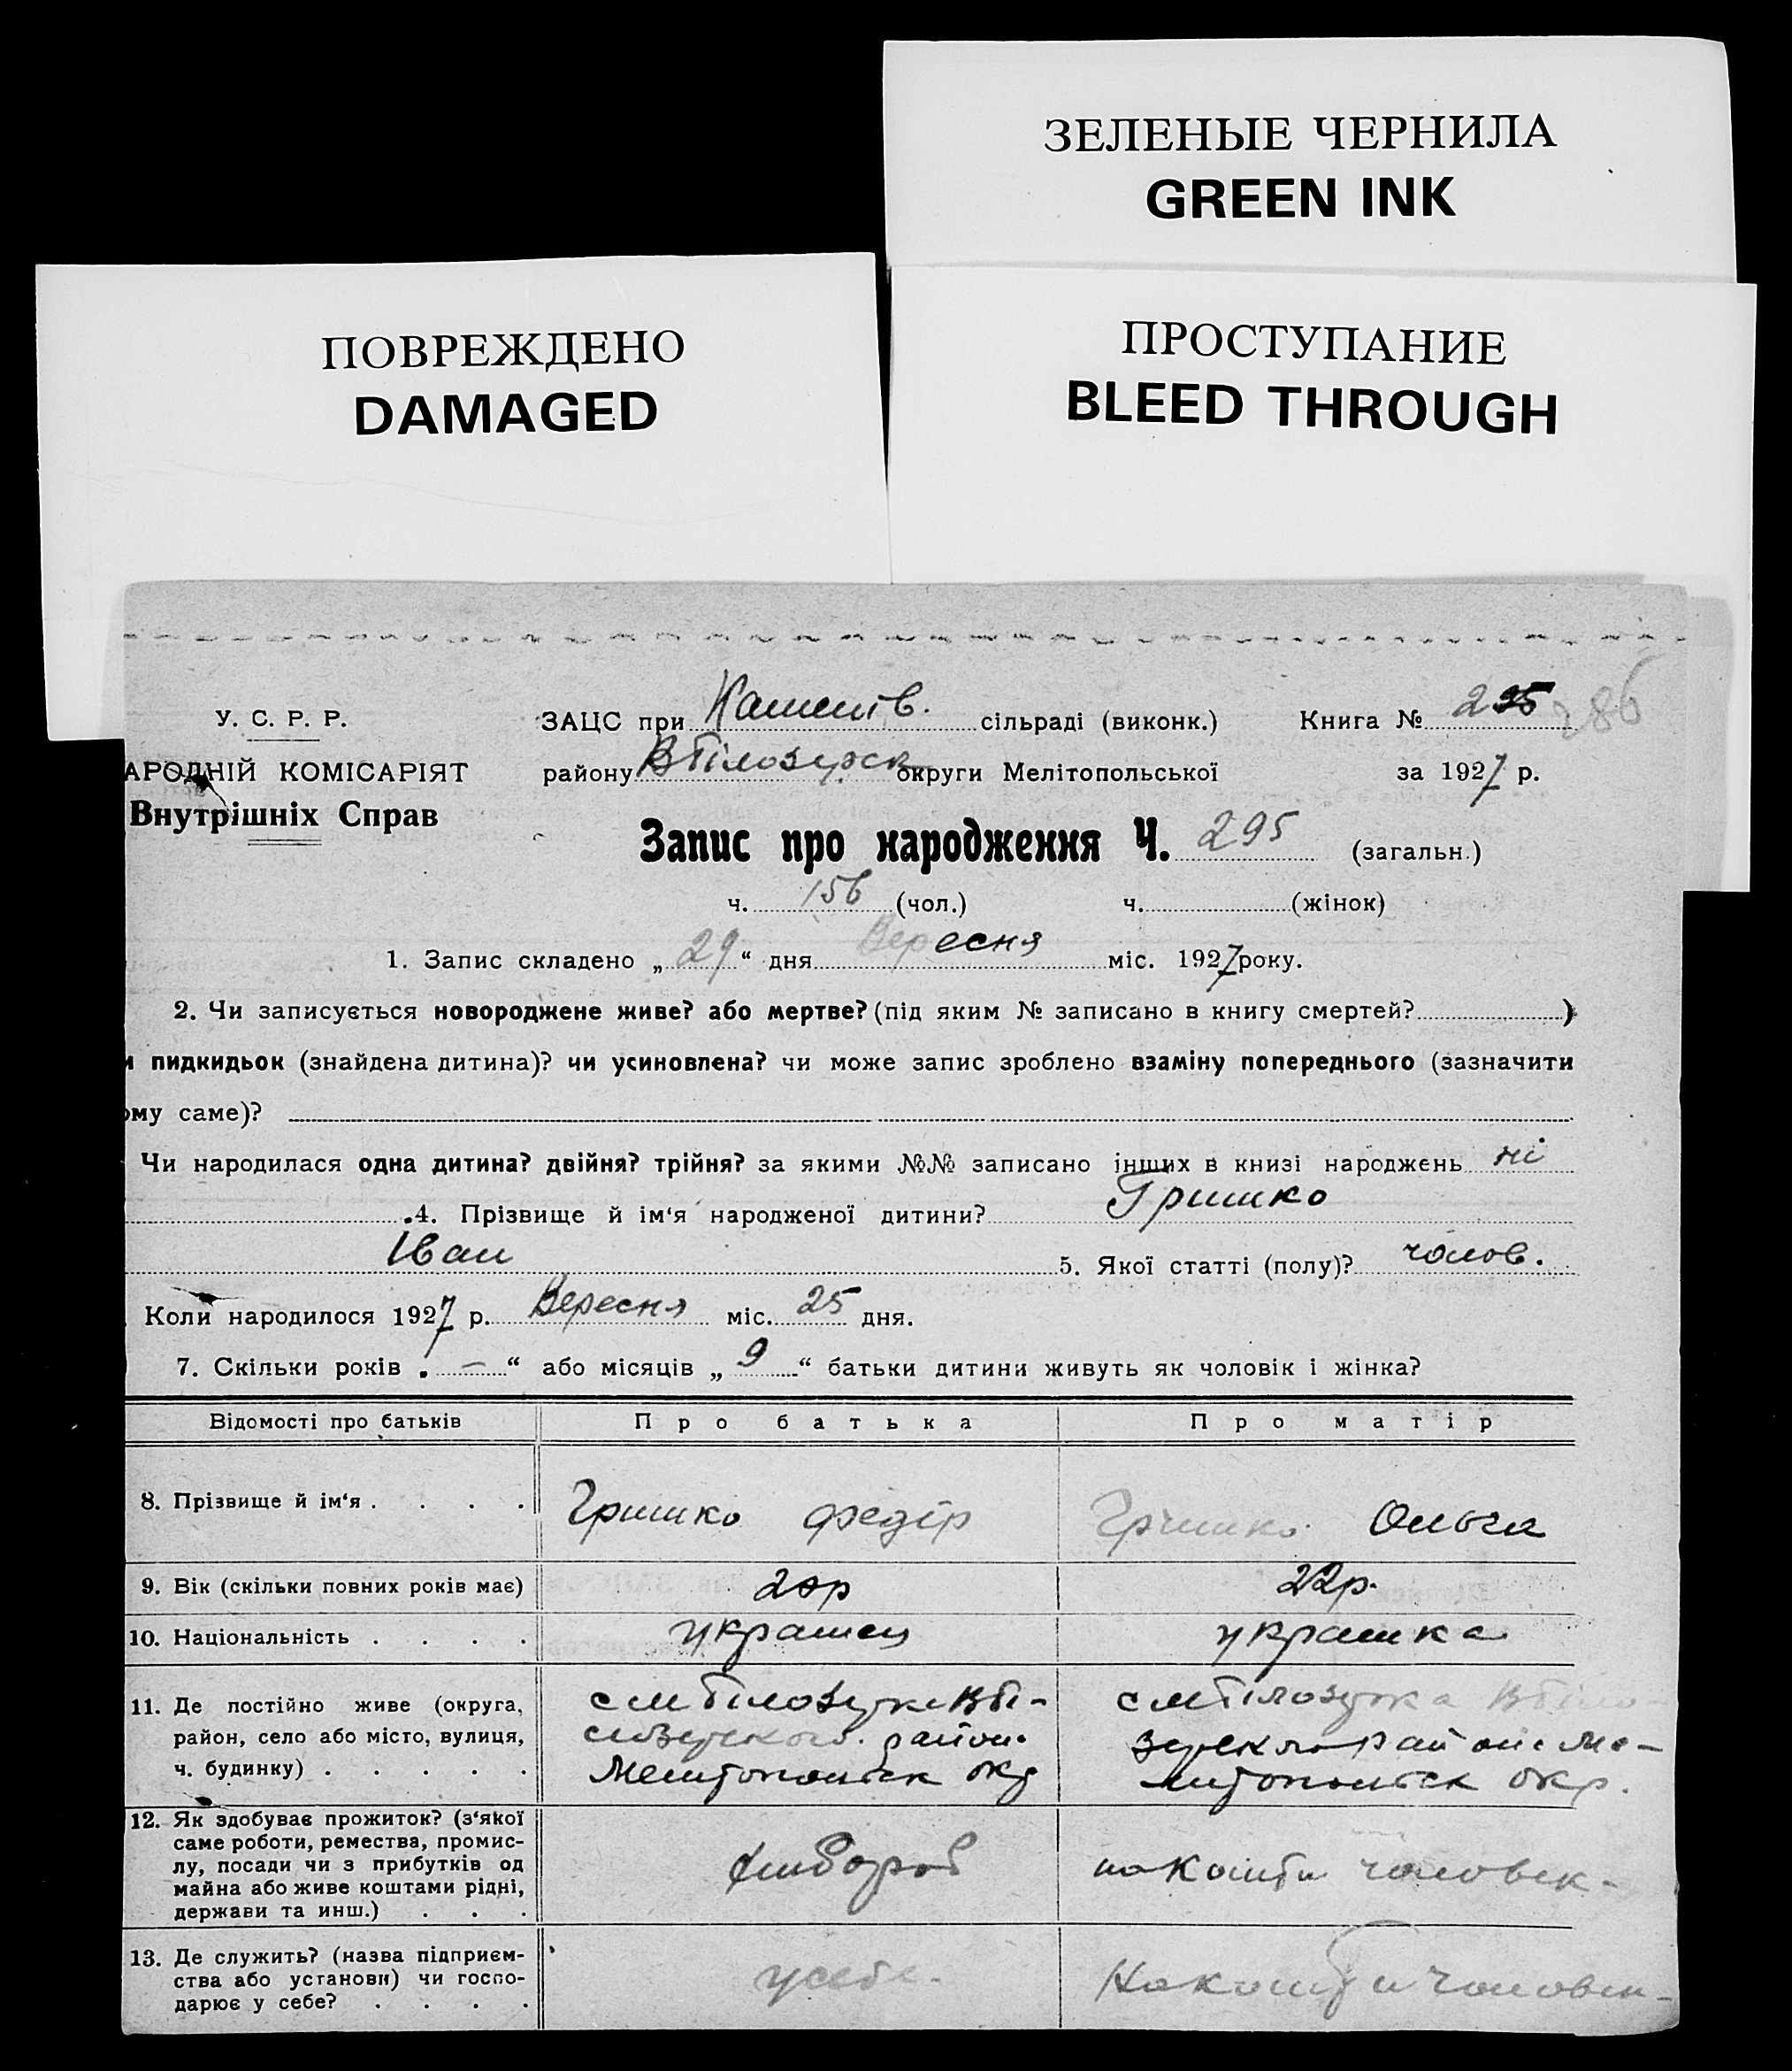 ЗЕЛЕНЫЕ ЧЕРНИЛА
GREEN INK
ПОВРЕЖДЕНО
DAMAGED
ПРОСТУПАНИЕ
BLEED THROUGH
У. С. Р. Р.
ЗАЦС при сільраді (виконк.) Книга № 286
АРОДНІЙ КОМІСАРІЯТ
району В Білозирск округи Мелітопольської за 1927 р.
Внутрішніх Справ
Запис про народження Ч. 295 (загальн.)
ч. 156 (чол.) ч. (жінок)
1. Запис складено „ 29 “ дня Вересня міс. 1927 року.
2. Чи записується новороджене живе? або мертве? (під яким № записано в книгу смертей? )
и пидкидьок (знайдена дитина)? чи усиновлена? чи може запис зроблено взаміну попереднього (зазначити
ому саме)?
Чи народилася одна дитина? двійня? трійня? за якими №№ записано інших в книзі народжень ні
4. Прізвище й ім‘я народженої дитини? Гришко
Іван 5. Якої статті (полу)? чолов.
Коли народилося 1927 р. Вересня міс. 25 дня.
7. Скільки років „ — “ або місяців „ 9 “ батьки дитини живуть як чоловік і жінка?
Відомості про батьків Про батька Про матір
8. Прізвище й ім‘я . . . . Гришко Федір Гришко Ольга
9. Вік (скільки повних років має) 20р 22р.
10. Національність . . . . українец українка
11. Де постійно живе (округа,
район, село або місто, вулиця,
ч. будинку) . . . . .
район.
Мелітопольск окр
Ме-
литопольск окр.
12. Як здобуває прожиток? (з‘якої
саме роботи, ремества, промис-
лу, посади чи з прибутків од
майна або живе коштами рідні,
держави та инш.) . . .
хлібороб на кошти чоловік-
13. Де служить? (назва підприєм-
ства або установи) чи госпо-
дарює у себе? . . . .
усебе. На кошти чоловік-